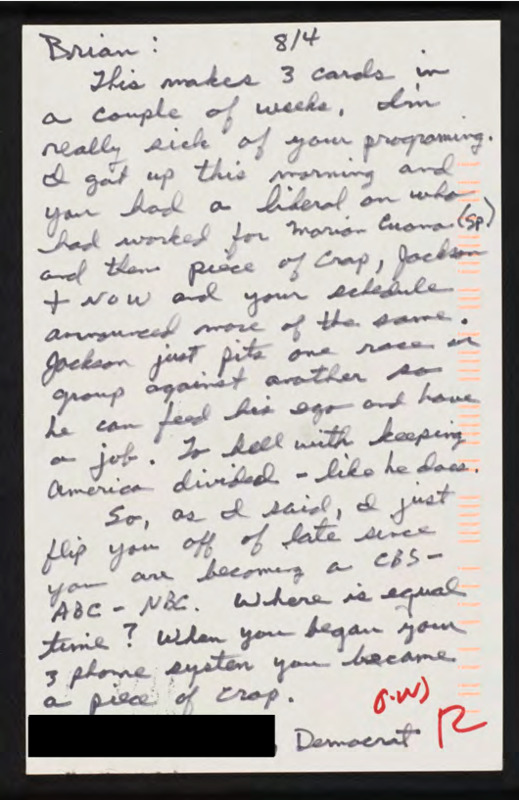 Brian: 8/4
This makes 3 cards in
a couple of weeks, I'm
really sick of your programing.
I got up this morning and
you had a liberal on who
had worked for Marion Cuomo (sp)
and then piece of crap, Jackson
+ NOW and your schedule
announced more of the same.
Jackson just pits one race or
group against another so
he can feed his ego and have
a job. To hell with keeping
America divided - like he does.
So, as I said, I just
flip you off of late since
you are becoming a CBS-
ABC - NBC. Where is equal
time? When you began your
3 phone system you became
a piece of crap.
, Democrat R